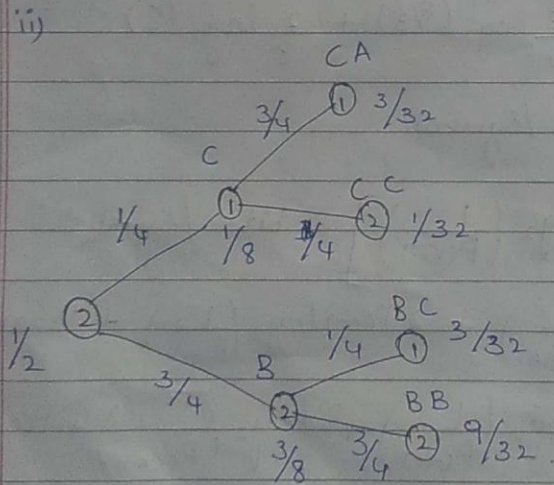 ii)
CA
3/4 1 3/32
C
1 CC
1/4 1/8 1/4 2 1/32
2
1/2
BC
1/4 1 3/32
3/4 B
2 BB
3/8 3/4 2 9/32